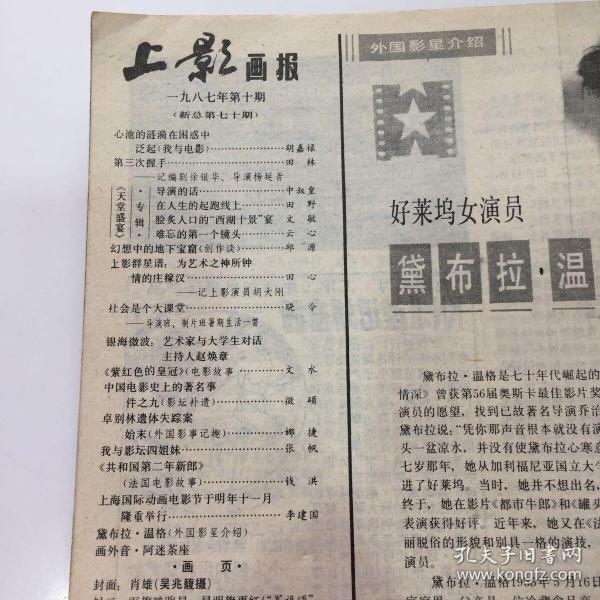 上影画报
一九八七年第十期
(新总第七十期)
心池的涟漪在困惑中
泛起(我与电影)……………胡嘉禄
第三次握手……………田林
——记编剧徐银华、导演杨延晋
《天堂盛宴》
·专辑·
导演的话……………中叔皇
在人生的起跑线上……………田野
脍炙人口的“西湖十景”宴 文敏
难忘的第一个镜头……………云心
幻想中的地下宝窟(创作谈)……邱源
上影群星谱:为艺术之神所钟
情的庄稼汉……………田心
——记上影演员胡大刚
社会是个大课堂……………晓令
——导演班、制片班暑期生活一瞥
银海微波:艺术家与大学生对话
主持人赵焕章
《紫红色的皇冠》(电影故事……文水
中国电影史上的著名事
件之九(影坛朴遗)……………微硕
卓别林遗体失踪案
始末(外国影事记趣)…………娜捷
我与影坛四姐妹……………张帆
《共和国第二年新郎》
(法国电影故事)……………钱洪
上海国际动画电影节于明年十一月
隆重举行……………李建国
黛布拉·温格(外国影星介绍)
画外音·阿迷茶座
·画页·
封面:肖雄(吴兆馥摄)
外国影星介绍
好莱坞女演员
黛布拉·温
黛布拉·温格是七十年代崛起的
情深》曾获第56届奥斯卡最佳影片奖
演员的愿望,找到已故著名导演乔治
黛布拉说:“凭你那声音根本就没有演
头一盆凉水,并没有使黛布拉心寒意
七岁那年,她从加利福尼亚国立大学
进了好莱坞。当时,她并不想出名,
终于,她在影片《都市牛郎》和《罐头
表演获得好评。近年来,她又在《法
丽脱俗的形貌和别具一格的演技,
演员。
黛布拉·温格1955年5月16日
孔夫子旧书网
kongfz.com